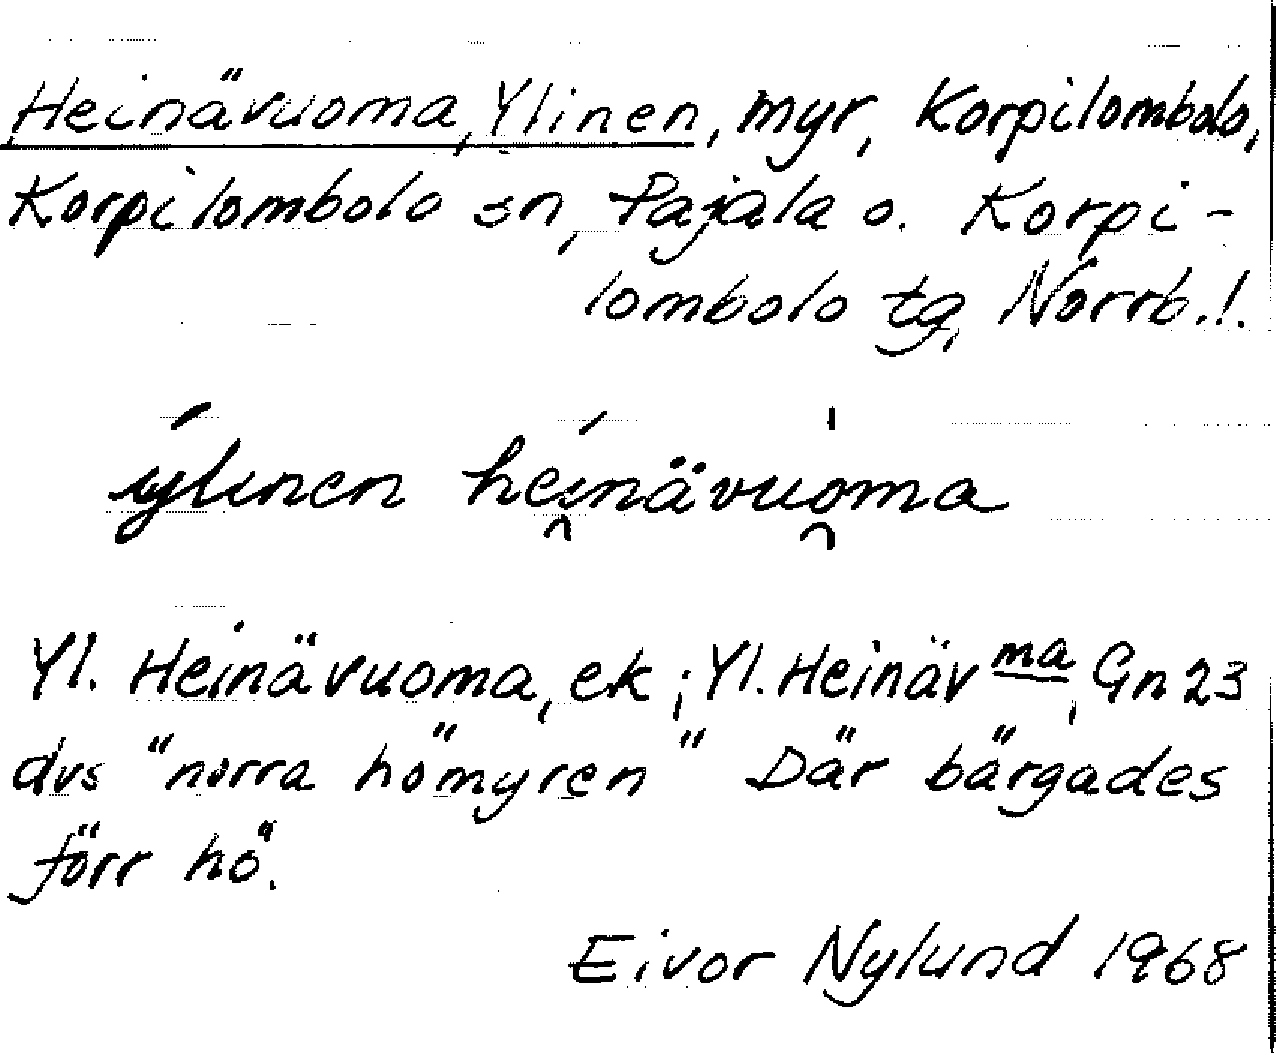 Heinävuoma, Ylinen, myr, Korpilombolo,
Korpilombolo sn, Pajala o. Korpi-
lombolo tg, Norrb.!.
ylinen heinävuoma
Yl. Heinävuoma, ek; Yl. Heinävma, Gn 23
dvs "norra hömyren" Där bärgades
förr hö.
Eivor Nylund 1968